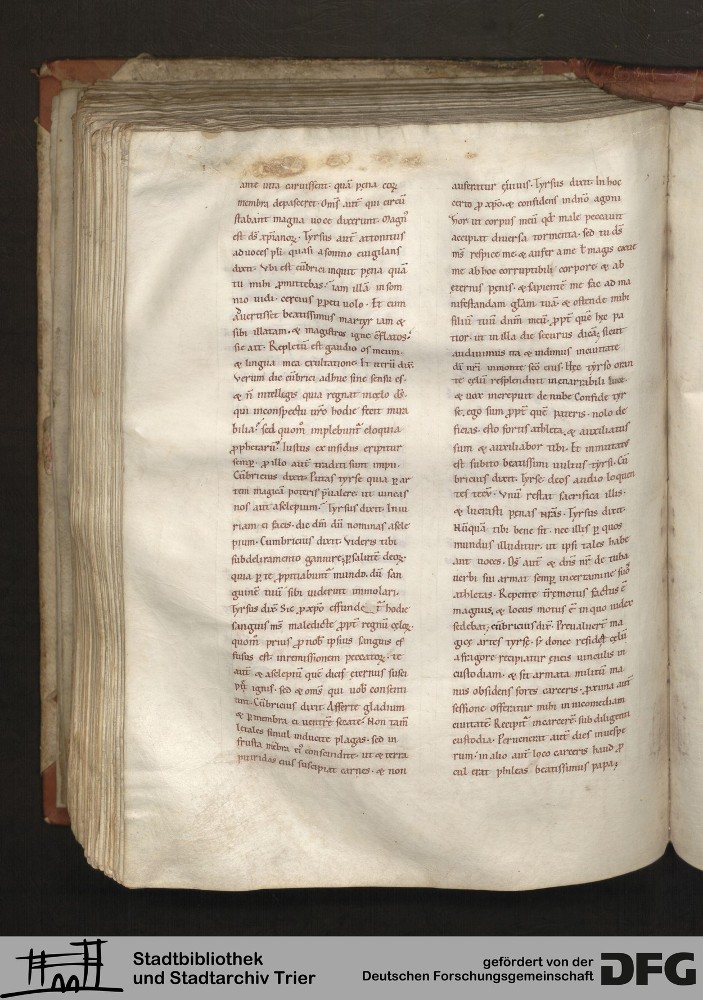 ante uita caruissent. quā pena eoꝝ
membra depasceret. Oms̄ aut̄ qui circū
stabant magna uoce dixerunt. Magn᷒
est ds̄ xp̄ianoꝝ. Tyrsus aut̄ attonitus
ad uoces pli. quasi a somno euigilans
dixit. Vbi est cūbrici inquit pena quā
tu mihi ꝓmittebas? iam illā in som
nio uidi. cereius ꝑpeti uolo. Et cum
aduertisset beatissimus martyr iam &
sibi illatam. & magistros igne efflatos.
sic ait. Repletū est gaudio os meum.
& lingua mea exultatione. Et iterū dix̄.
Verum dic cūbrici adhuc sine sensu es.
& n̄ intellegis quia regnat in cęlo ds̄.
qui in conspectu uro hodie fecit mira
bilia? sed quom̄ implebunt̄ eloquia
ꝓphetarū? Iustus ex insidiis eripitur
semꝑ. ꝓ illo aut̄ traditi sunt impii.
Cūbricius dixit. Putas tyrse quia ꝑ ar
tem magicā poteris p̄ualere. ut uincas
nos aut asclepium? Tyrsus dixit. Iniu
riam ei facis. dic dm̄ dū nominas ascle
pium. Cumbricius dixit. Videris tibi
sub deliramento gannire. ꝑ salutē deoꝝ.
quia ꝑ te ꝓpitiabunt̄ mundo. dū san
guinē tuū sibi uiderint immolari.
Tyrsus dix̄. Sic ꝓ xp̄o effundet̄ hodie
sanguis ms̄ maledicte ꝓpt̄ regnū cęloꝝ.
quom̄ prius ꝓ nob̄ ipsius sanguis ef
fusus est. in remissionem peccatoꝝ. te
aut̄ & asclepiū quē dicis ęternus susci
piet ignis. sed & oms̄ qui uob̄ consenti
unt. Cūbricius dixit. Afferte gladium
& ꝑ membra ei uentrē secate. Non tam̄
letales simul inducite plagas. sed in
frusta mēbra ei᷒ conscindite. ut & terra
putridas eius suscipiat carnes. & non
auferatur cruciatus. Tyrsus dixit. In hoc
certo ꝓ xp̄o. & confidens in dn̄o agoni
zor. ut corpus meū qd̄ male peccauit
accipiat diuersa tormenta. sed tu ds̄
ms̄ respice me. & aufer a me t̄ magis exue
me ab hoc corruptibili corpore. & ab
ęternis penis. & sapientē me fac ad ma
nifestandam glam̄ tuā. & ostende mihi
filiū tuū dnm̄ meū. ꝓpt̄ quē hęc pa
tior. ut in illa die securus dicā. sicut
audiuimus ita & uidimus in ciuitate
dī nrī in monte scō eius. Hęc tyrso oran
te cęlū resplenduit inenarrabili luce.
& uox increpuit de nube. Confide tyr
se. ego sum ꝓpt̄ quē pateris. noli de
ficias. esto fortis athleta. & auxiliatus
sum & auxiliabor tibi. Et inmutatᷤ
est subito beatissimi uultus tyrsi. Cū
bricius dixit. Tyrse. deos audio loquen
tes tecū. Vnū restat sacrifica illis.
& lucrasti penas nr̄as. Tyrsus dixit.
Nūquā tibi bene sit. nec illis ꝑ quos
mundus illuditur. ut ipsi tales habe
ant uoces. Ds̄ aut̄ & dns̄ nr̄ de tuba
uerbi sui armat semꝑ in certamine suo᷒
athletas. Repente terremotus factus ē
magnus. & locus motus ē in quo iudex
sedebat. cūbricius dix̄. Preualuert̄ ma
gice artes tyrse. s; donec resideat cęlū
a fragore recipiatur eneis uinculis in
custodiam. & sit armata militū ma
nus obsidens fores carceris. ꝓxima aut̄
sessione offeratur mihi in nicomediam
ciuitatē. Recipit̄ in carcerē. sub diligenti
custodia. Peruenerat aut̄ dies in uespe
rum. in alio aut̄ loco carceris haud ꝓ
cul erat phileas beatissimus papa;
Stadtbibliothek
und Stadtarchiv Trier
gefördert von der
Deutschen Forschungsgemeinschaft
DFG